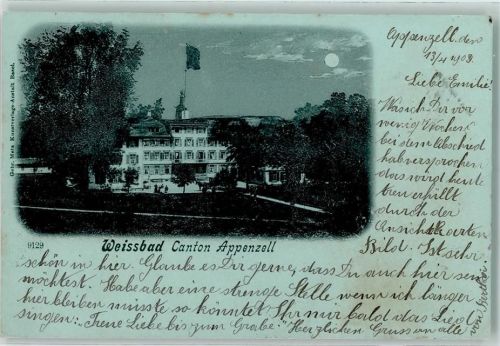 Appenzell den
13/4 1903.
Liebe Emilie!
Was ich Dir vor
wenig Wochen
bei dem Abschied
hab versprochen
das wird heute
erfüllt
durch der
Ansichtskarten
Bild. Ist sehr
Gebr. Metz Kunstverlags-Anstalt Basel.
9129
Weissbad Canton Appenzell
schön in hier. Glaube es Dir gerne, dass Du auch hier sein
möchtest. Habe aber eine strenge Stelle wenn ich länger
hier bleiben müsste so könntet Ihr mir bald das Lied
singen: "Treue Liebe bis zum Grabe" Herzlichen Gruss an alle
von